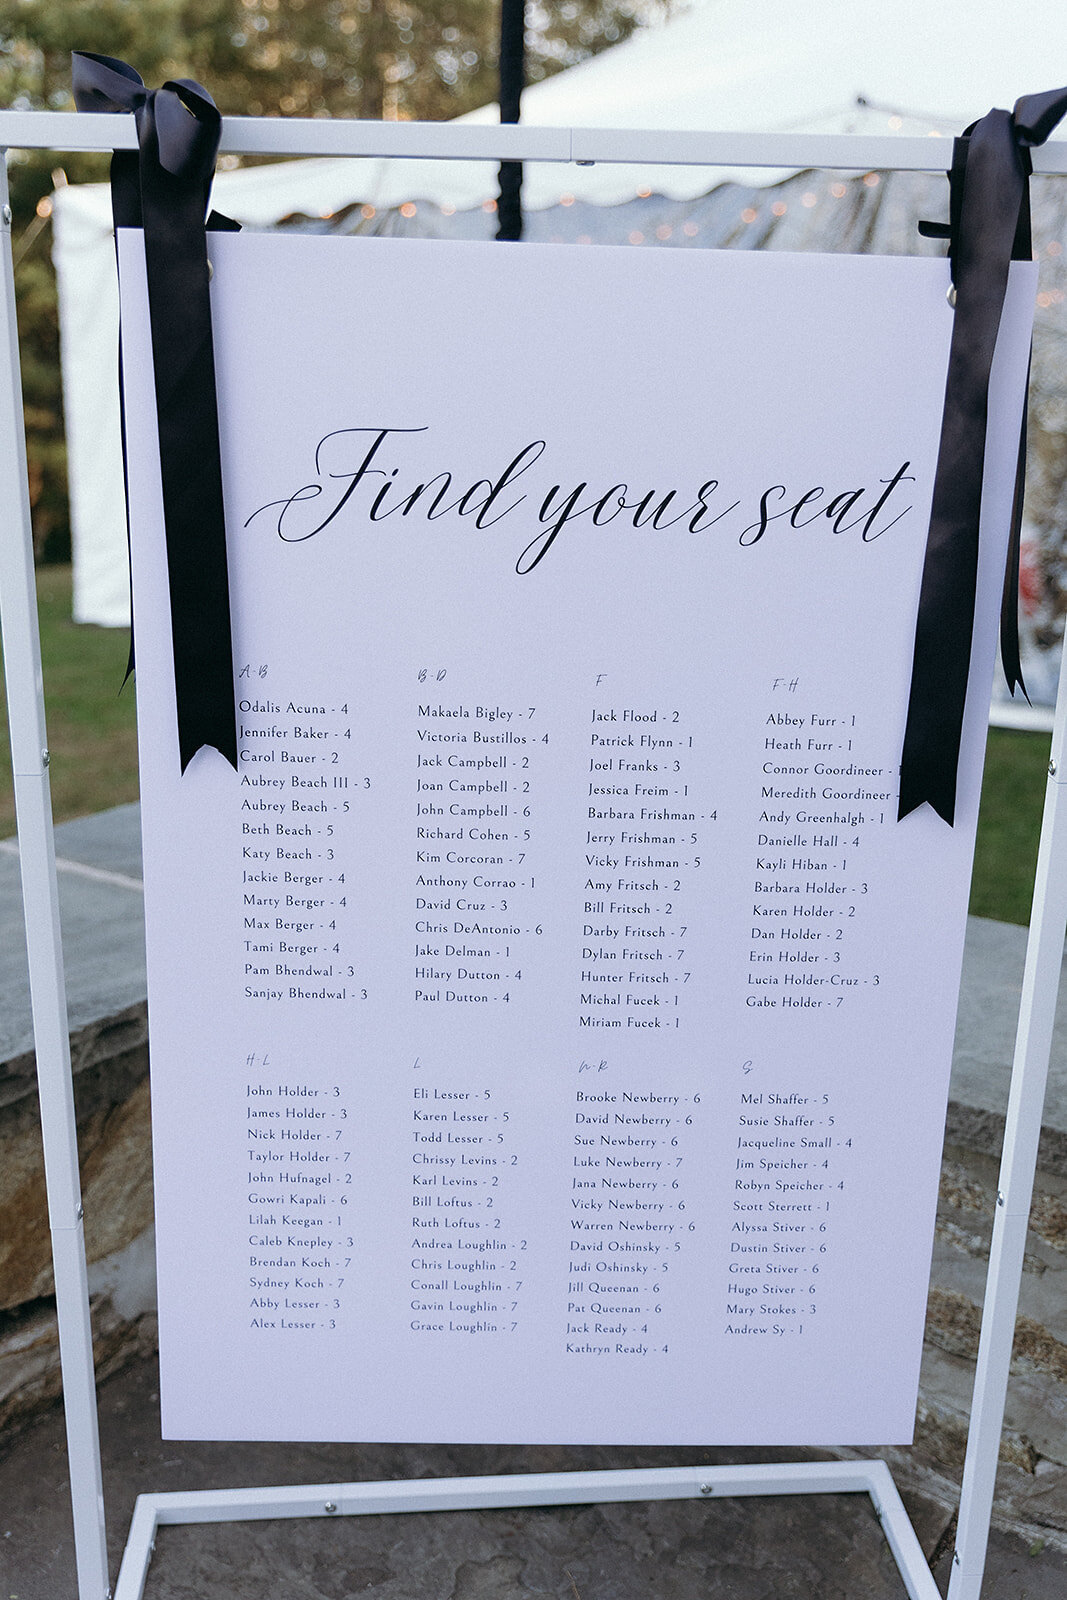 Find your seat
A-B
Odalis Acuna - 4
Jennifer Baker - 4
Carol Bauer - 2
Aubrey Beach III - 3
Aubrey Beach - 5
Beth Beach - 5
Katy Beach - 3
Jackie Berger - 4
Marty Berger - 4
Max Berger - 4
Tami Berger - 4
Pam Bhendwal - 3
Sanjay Bhendwal - 3
B-D
Makaela Bigley - 7
Victoria Bustillos - 4
Jack Campbell - 2
Joan Campbell - 2
John Campbell - 6
Richard Cohen - 5
Kim Corcoran - 7
Anthony Corrao - 1
David Cruz - 3
Chris DeAntonio - 6
Jake Delman - 1
Hilary Dutton - 4
Paul Dutton - 4
F
Jack Flood - 2
Patrick Flynn - 1
Joel Franks - 3
Jessica Freim - 1
Barbara Frishman - 4
Jerry Frishman - 5
Vicky Frishman - 5
Amy Fritsch - 2
Bill Fritsch - 2
Darby Fritsch - 7
Dylan Fritsch - 7
Hunter Fritsch - 7
Michal Fucek - 1
Miriam Fucek - 1
F-H
Abbey Furr - 1
Heath Furr - 1
Connor Goordineer -
Meredith Goordineer -
Andy Greenhalgh - 1
Danielle Hall - 4
Kayli Hiban - 1
Barbara Holder - 3
Karen Holder - 2
Dan Holder - 2
Erin Holder - 3
Lucia Holder-Cruz - 3
Gabe Holder - 7
H-L
John Holder - 3
James Holder - 3
Nick Holder - 7
Taylor Holder - 7
John Hufnagel - 2
Gowri Kapali - 6
Lilah Keegan - 1
Caleb Knepley - 3
Brendan Koch - 7
Sydney Koch - 7
Abby Lesser - 3
Alex Lesser - 3
L
Eli Lesser - 5
Karen Lesser - 5
Todd Lesser - 5
Chrissy Levins - 2
Karl Levins - 2
Bill Loftus - 2
Ruth Loftus - 2
Andrea Loughlin - 2
Chris Loughlin - 2
Conall Loughlin - 7
Gavin Loughlin - 7
Grace Loughlin - 7
N-R
Brooke Newberry - 6
David Newberry - 6
Sue Newberry - 6
Luke Newberry - 7
Jana Newberry - 6
Vicky Newberry - 6
Warren Newberry - 6
David Oshinsky - 5
Judi Oshinsky - 5
Jill Queenan - 6
Pat Queenan - 6
Jack Ready - 4
Kathryn Ready - 4
S
Mel Shaffer - 5
Susie Shaffer - 5
Jacqueline Small - 4
Jim Speicher - 4
Robyn Speicher - 4
Scott Sterrett - 1
Alyssa Stiver - 6
Dustin Stiver - 6
Greta Stiver - 6
Hugo Stiver - 6
Mary Stokes - 3
Andrew Sy - 1